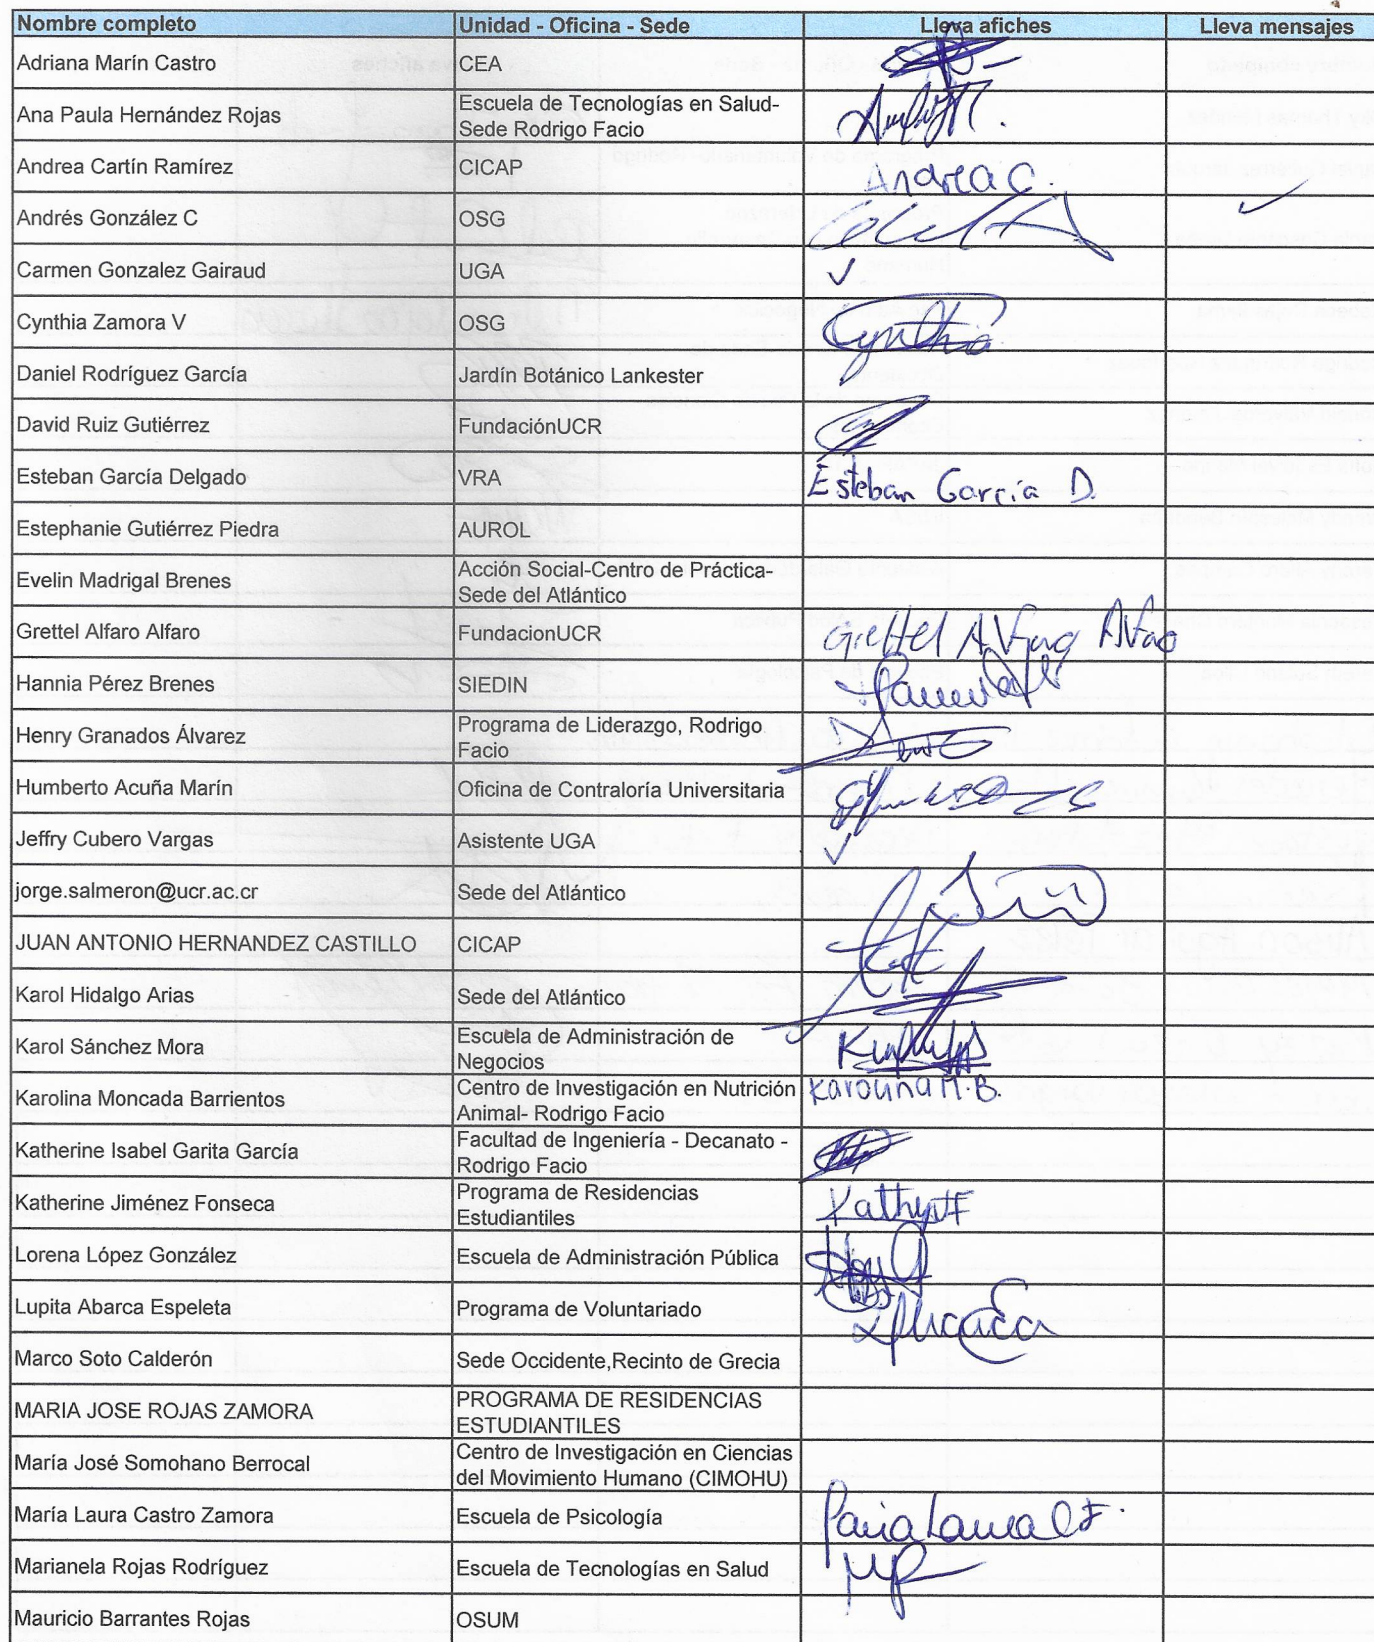 Nombre completo Unidad - Oficina - Sede Lleva afiches Lleva mensajes
Adriana Marín Castro CEA
Ana Paula Hernández Rojas Escuela de Tecnologías en Salud-
Sede Rodrigo Facio
Andrea Cartín Ramírez CICAP Andrea C.
Andrés González C OSG ✓
Carmen Gonzalez Gairaud UGA ✓
Cynthia Zamora V OSG Cynthia
Daniel Rodríguez García Jardín Botánico Lankester
David Ruiz Gutiérrez FundaciónUCR
Esteban García Delgado VRA Esteban García D.
Estephanie Gutiérrez Piedra AUROL
Evelin Madrigal Brenes Acción Social-Centro de Práctica-
Sede del Atlántico
Grettel Alfaro Alfaro FundacionUCR Grettel Alfaro Alfaro
Hannia Pérez Brenes SIEDIN
Henry Granados Álvarez Programa de Liderazgo, Rodrigo
Facio
Humberto Acuña Marín Oficina de Contraloría Universitaria
Jeffry Cubero Vargas Asistente UGA ✓
jorge.salmeron@ucr.ac.cr Sede del Atlántico
JUAN ANTONIO HERNANDEZ CASTILLO CICAP
Karol Hidalgo Arias Sede del Atlántico
Karol Sánchez Mora Escuela de Administración de
Negocios
Karolina Moncada Barrientos Centro de Investigación en Nutrición Karolina M.B.
Animal- Rodrigo Facio
Katherine Isabel Garita García Facultad de Ingeniería - Decanato -
Rodrigo Facio
Katherine Jiménez Fonseca Programa de Residencias KathyJF
Estudiantiles
Lorena López González Escuela de Administración Pública
Lupita Abarca Espeleta Programa de Voluntariado
Marco Soto Calderón Sede Occidente,Recinto de Grecia
MARIA JOSE ROJAS ZAMORA PROGRAMA DE RESIDENCIAS
ESTUDIANTILES
María José Somohano Berrocal Centro de Investigación en Ciencias
del Movimiento Humano (CIMOHU)
María Laura Castro Zamora Escuela de Psicología
Marianela Rojas Rodríguez Escuela de Tecnologías en Salud
Mauricio Barrantes Rojas OSUM